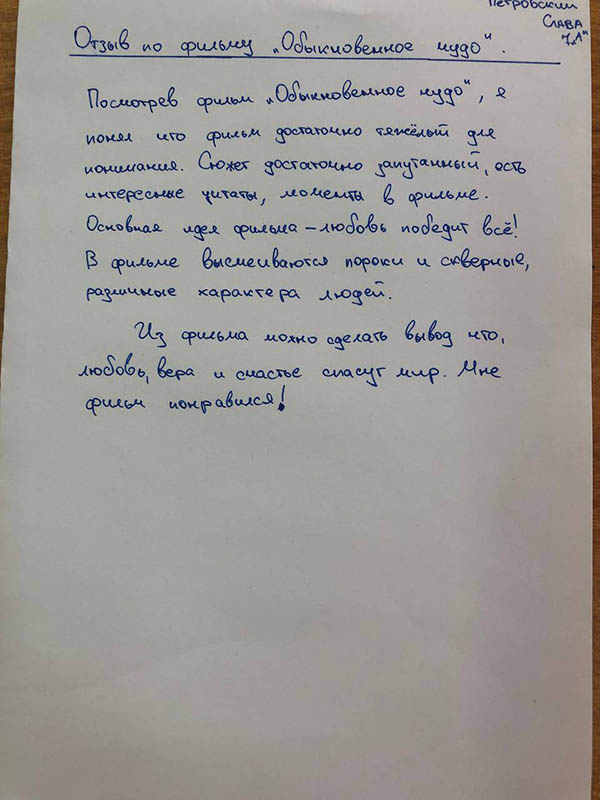 Петровский
Слава
7„А"
Отзыв по фильму „Обыкновенное чудо".
Посмотрев фильм „Обыкновенное чудо", я
понял что фильм достаточно тяжёлый для
понимания. Сюжет достаточно запутанный, есть
интересные цитаты, моменты в фильме.
Основная идея фильма – любовь победит всё!
В фильме высмеиваются пороки и скверные,
различные характера людей.
Из фильма можно сделать вывод что,
любовь, вера и счастье спасут мир. Мне
фильм понравился!